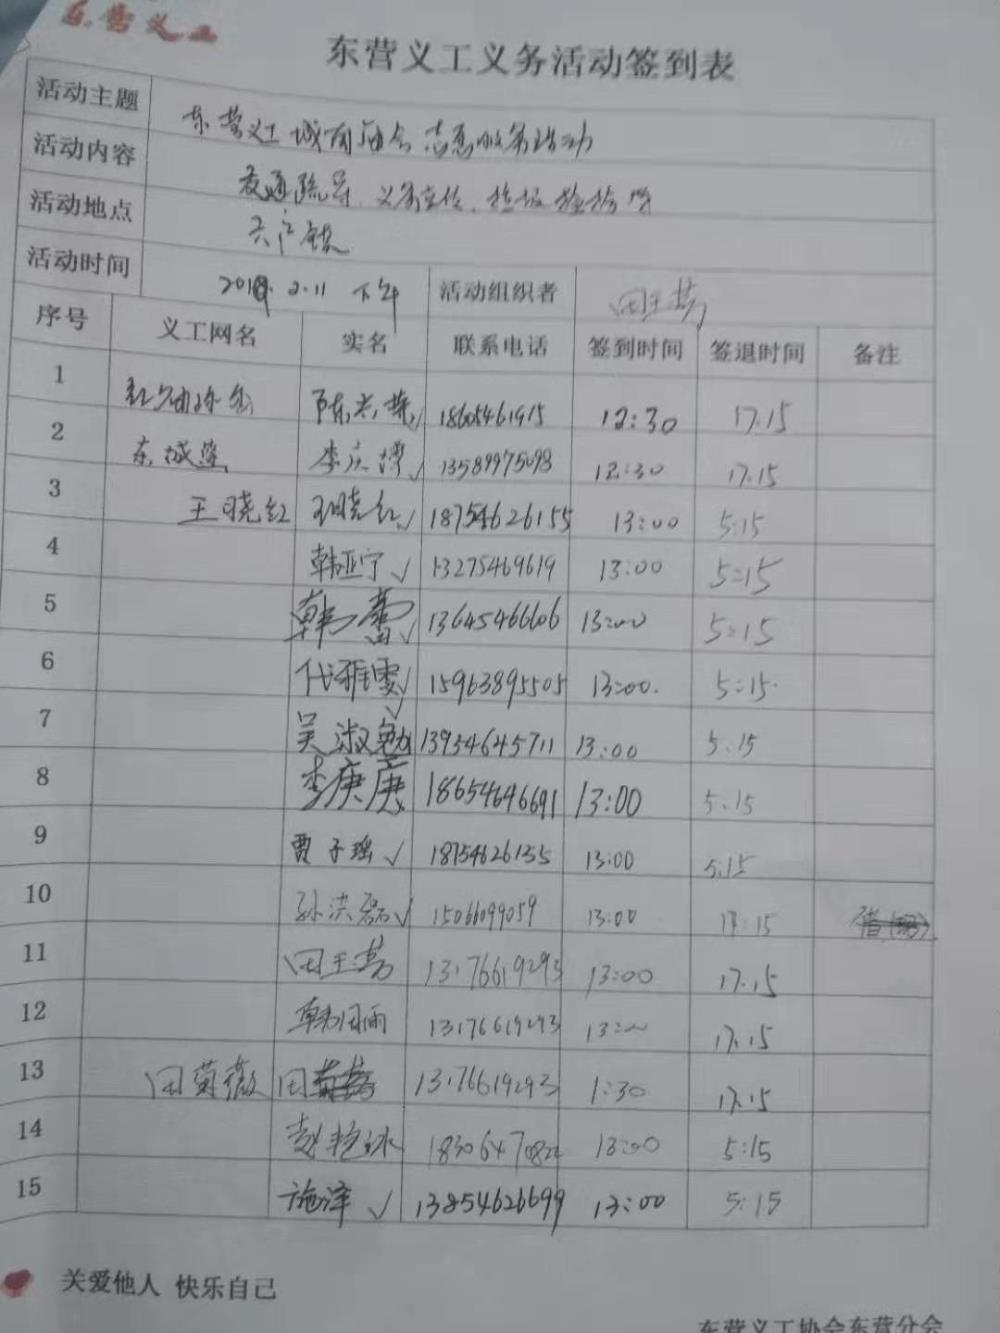 东营义工
东营义工义务活动签到表
活动主题 东营义工 城南庙会 志愿服务活动
活动内容 交通疏导、义务宣传、捡垃圾 等
活动地点 六户镇
活动时间 2019.2.11 下午 活动组织者 田玉芳
序号 义工网名 实名 联系电话 签到时间 签退时间 备注
1 陈兴 18605461915 12:30 17.15
2 东城 李庆 ✓ 13589975098 12:30 17.15
3 王晓红 王晓红 ✓ 18754626155 13:00 5:15
4 韩亚宁 ✓ 13275469619 13:00 5:15
5 韩蕾 ✓ 13645466606 13:00 5:15
6 代雅雯 ✓ 15963895505 13:00. 5:15.
7 吴淑勉 ✓ 13954645711 13:00 5.15
8 李庚庚 18654646691 13:00 5.15
9 贾子瑶 ✓ 18754626155 13:00 5.15
10 孙洪磊 ✓ 15066099059 13:00 17:15
11 田玉芳 13176619293 13:00 17.15
12 韩雨 13176619293 13:00 17.15
13 田菊薇 田 13176619293 1:30 17.15
14 赵艳冰 13:00 5:15
15 施泽 ✓ 13854626699 13:00 5:15
关爱他人 快乐自己
东营义工协会东营分会